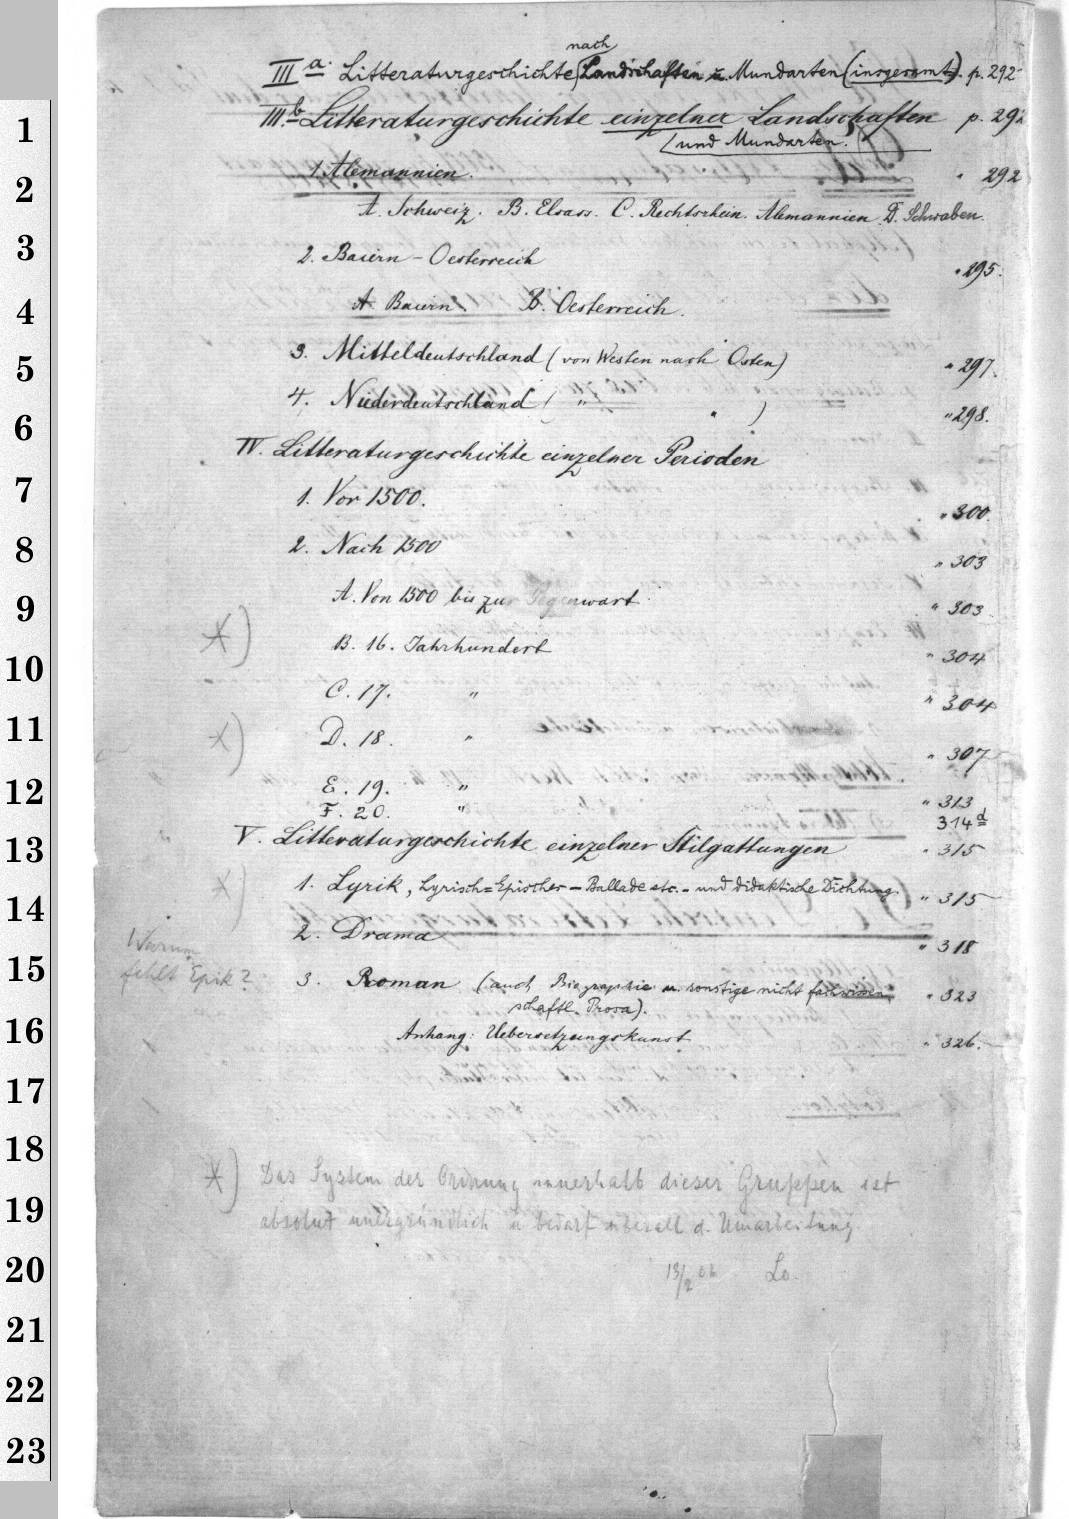 nach
III a. Litteraturgeschichte Landschaften u. Mundarten (insgesamt). p. 292
III b Litteraturgeschichte einzelner Landschaften p. 292
(und Mundarten.)
1. Alemannien. " 292
A. Schweiz. B. Elsass. C. Rechtsrhein. Alemannien D. Schwaben.
2. Baiern - Oesterreich " 295.
A. Baiern. B. Oesterreich.
3. Mitteldeutschland (von Westen nach Osten) " 297.
4. Niederdeutschland ( " " ) " 298.
IV. Litteraturgeschichte einzelner Perioden
1. Vor 1500. " 300.
2. Nach 1500 " 303
A. Von 1500 bis zur Gegenwart " 303
*) B. 16. Jahrhundert " 304
C. 17. " " 304
*) D. 18. " " 307
E. 19. " " 313
F. 20. " 314 d
V. Litteraturgeschichte einzelner Stilgattungen " 315
*) 1. Lyrik, Lyrisch=Epischer - Ballade etc. - und didaktische Dichtung. " 315
2. Drama " 318
Warum
fehlt Epik?
3. Roman (auch Biographie u. sonstige nicht fachwissen " 323
schaftl. Prosa).
Anhang: Uebersetzungskunst " 326.
*) Das System der Ordnung innerhalb dieser Gruppen ist
absolut unergründlich u bedarf überall d. Umarbeitung
13/2 Lo.
1
2
3
4
5
6
7
8
9
10
11
12
13
14
15
16
17
18
19
20
21
22
23